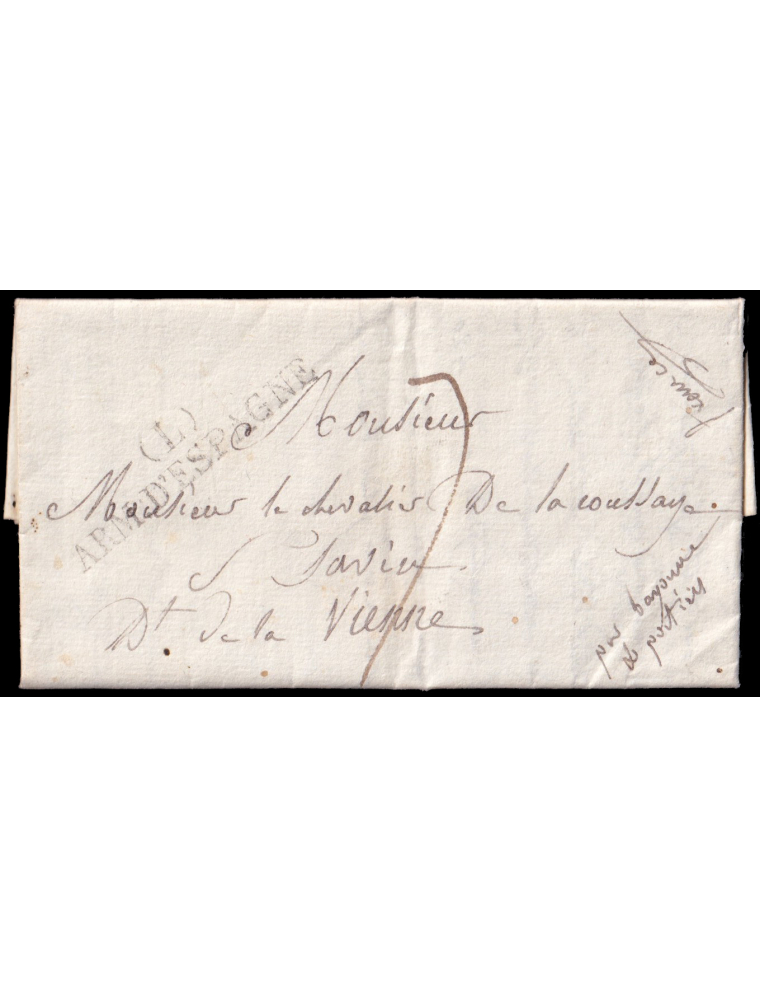 (L)
ARM. D'ESPAGNE
7
Monsieur
Monsieur le chevalier De la coussaye.
Savin
Dt. de la Vienne
france
par bayonne
& poitiers